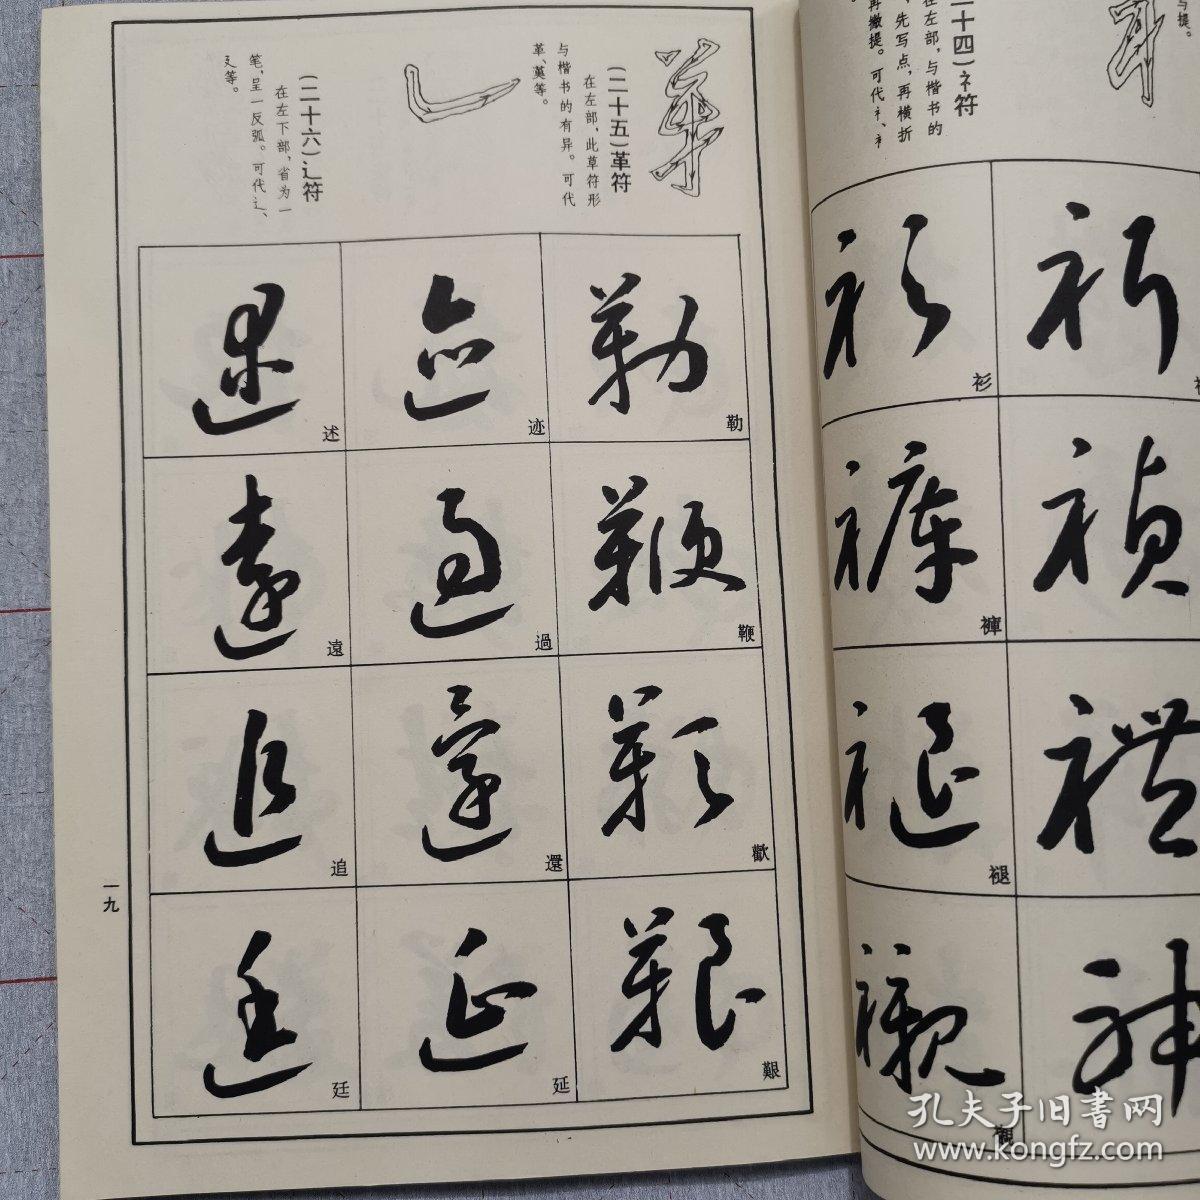 与提。
二十四）礻符
在左部，与楷书的
，先写点，再横折
再撇提。可代礻、衤
衫
褲
禎
褪
禮
襯
神
（二十五）革符
在左部，此草符形
与楷书的有异。可代
革、莫等。
（二十六）辶符
在左下部，省为一
笔，呈一反弧。可代辶、
廴等。
勒
鞭
歡
艱
迹
過
還
延
述
遠
追
廷
一九
孔夫子旧書网
www.kongfz.com